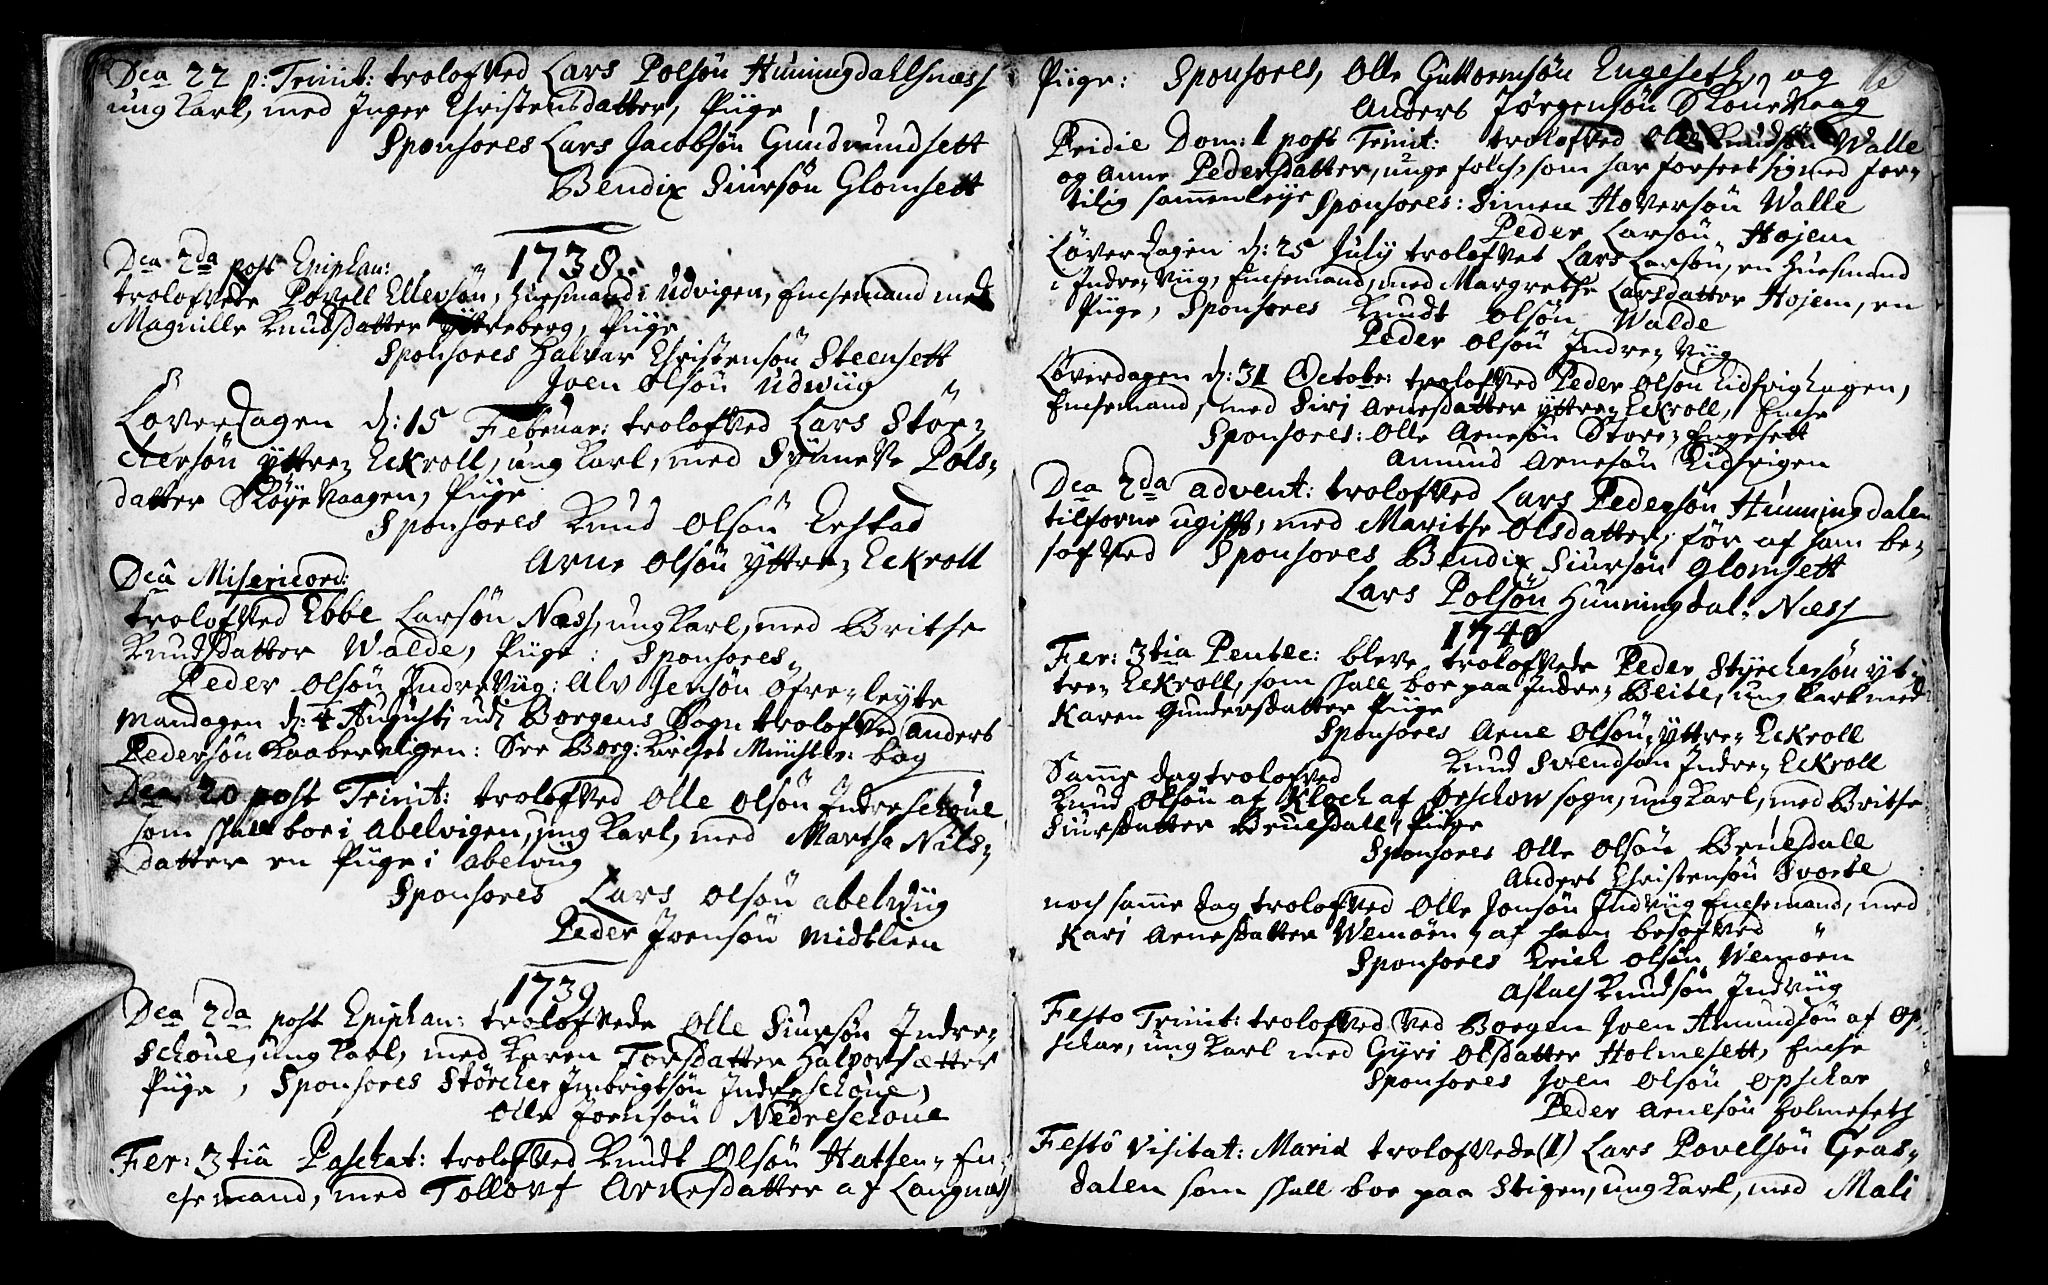 Dca 22 p: Trinit: trolofved Lars Polsøn Hunningdahlsnæss
ung Karl, med Inger Christensdatter, Piige
Sponsores Lars Jacobsøn Gundrundsett
Bendix Siursøn Glomsett
1738.
Dca 2da post Epiphan:
trolofvede Povell Ellevsøn, Huusmand i Udvigen, Enchemand med
Magnille Knudsdatter Yttreberg, Piige
Sponsores Halvar Christensøn Steensett
Joen Olsøn Udwiig
Løverdagen d: 15 Februar: trolofved Lars Stør-
chersøn Yttre- Eckroll, ung Karl, med Synneve Pols-
datter Skøyevaagen, Piige
Sponsores Knud Olsøn Erstad
Arne Olsøn Yttre- Eckroll
Dca Misericord:
trolofved Ebbe Larsøn Næss, ung Karl, med Brithe
Knudsdatter Walde, Piige: Sponsores-
Peder Olsøn Indreviig: Alv Jensøn Øfre-leyte
Mandagen d: 4 Augusti udi Borgens Sogn trolofved Anders
Pedersøn Kaabervigen: See Borg: Kirches Minister: bog
Dca 20 post Trinit: trolofved Olle Olsøn Indreschoue
som skall boe i Abelvigen, ung Karl, med Martha Nils-
datter en Piige i Abelviig
Sponsores Lars Olsøn Abelwiig
Peder Joensøn Midtlien
1739
Dca 2da post Epiphan: trolofvede Olle Siursøn Indre-
schoue, ung Karl, med Karen Torsdatter Halvorsætter
Piige, Sponsores Størcher Imbrigtsøn Indreschoue,
Olle Joensøn Nedreschoue
Fer: 3tia Paschat: trolofved Knudt Olsøn Hatsen- En-
chemand, med Tollovf Arnesdatter af Langnæss
Piige: Sponsores, Olle Guttormsøn Engeseth, og
Anders Jørgensøn Skouevaag
Pridie Dom: 1 post Trinit: trolofved Ole Knudsøn Walle
og Anne Pedersdatter, unge folch, som har forseet sig med for-
tilig sammenleye Sponsores: Simen Hoversøn Walle
Peder Larsøn Hojem
Løverdagen d: 25 July trolofvet Lars Larsøn, en Huusmand
i Indre- Viig, Enchemand, med Margrethe Larsdatter Hojem, en
Piige, Sponsores Knudt Olsøn Walde
Peder Olsøn Indre- Viig
Løverdagen d: 31 Octobr: trolofved Peder Olsøn Lidsvighagen,
Enchemand, med Siri Arnesdatter Yttre- Eckroll, Enche
Sponsores: Olle Arnesøn Store- Engesett
Amund Arnesøn Lidsvigen
Dca 2da Advent: trolofved Lars Pedersøn Hunningdalen
tilforne ugift, med Marithe Olsdatter, før af ham be-
sofved Sponsores Bendix Siursøn Glomsett
Lars Polsøn Hunningdal: Næss
1740
Fer: 3tia Pentec: bleve trolofvede Peder Styrchersøn Yt-
tre- Eckroll, som skall boe paa Indre- Bleite, ung Karl med
Karen Gundersdatter Piige
Sponsores Arne Olsøn Yttre- Eckroll
Knud Svendsøn Indre- Eckroll
Samme dag trolofved
Knud Olsøn af Kloch af Ørschow sogn, ung Karl, med Brithe
Siursdatter Bruesdall, Piige
Sponsores Olle Olsøn Bruesdall
Anders Christensøn Svorte
noch samme dag trolofved Olle Jonsøn Indviig Enchemand, med
Kari Arnesdatter Wemøen, af ham besofved
Sponsores Erich Olsøn Wemøen
Aslach Knudsøn Indviig
Festo Trinit: trolofved ved Borgen Joen Amundsøn af Op-
schar, ung Karl med Gyri Olsdatter Holmesett, Enche
Sponsores Joen Olsøn Opschar
Peder Arnesøn Holmeseth
Festo Visitat: Mariæ trolofvede (1) Lars Povelsøn Gras-
dalen som skall boe paa Stigen, ung Karl, med Mali